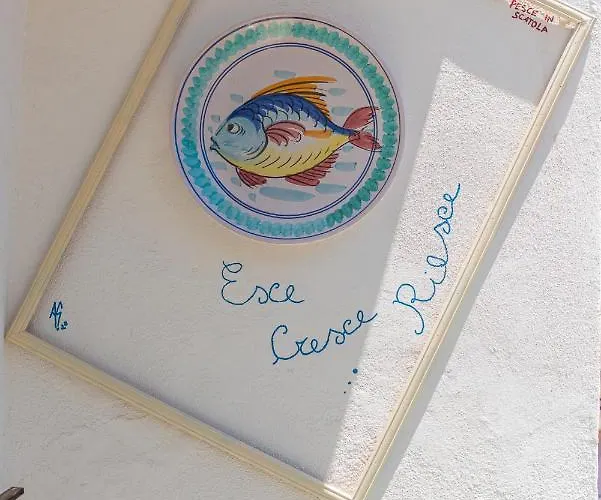 PESCE IN
SCATOLA
Esce
Cresce
Riesce